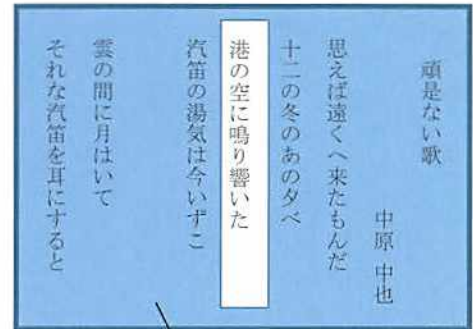 頑是ない歌
中原 中也
思えば遠くへ来たもんだ
十二の冬のあの夕べ
港の空に鳴り響いた
汽笛の湯気は今いずこ
雲の間に月はいて
それな汽笛を耳にすると